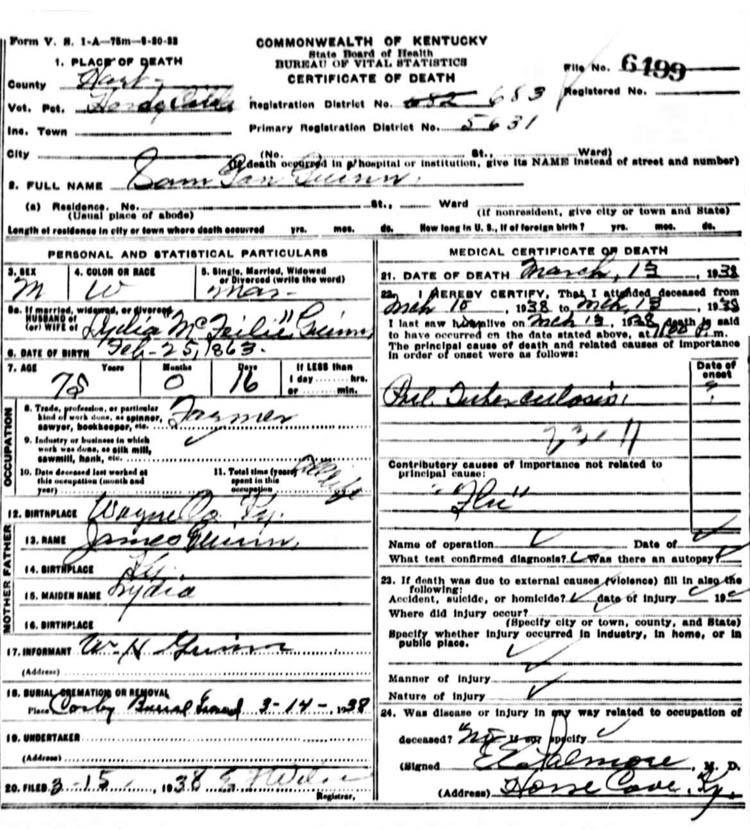 Form V. S. 1-A—75m—8-20-38
COMMONWEALTH OF KENTUCKY
State Board of Health
BUREAU OF VITAL STATISTICS
CERTIFICATE OF DEATH
File No. 6499
Registered No.
1. PLACE OF DEATH
County Hart
Vot. Pct.
Registration District No. 682 683
Inc. Town
Primary Registration District No. 5631
City (No. St., Ward)
(If death occurred in a hospital or institution, give its NAME instead of street and number)
2. FULL NAME Sam Guinn
(a) Residence. No. St., Ward
(Usual place of abode) (If nonresident, give city or town and State)
Length of residence in city or town where death occurred yrs. mos. ds. How long in U. S., if of foreign birth? yrs. mos. ds.
PERSONAL AND STATISTICAL PARTICULARS
3. SEX 4. COLOR OR RACE 5. Single, Married, Widowed
or Divorced (write the word)
M W Mar-
5a. If married, widowed, or divorced
HUSBAND of
(or) WIFE of Lydia Guinn
6. DATE OF BIRTH Feb-25, 1863.
7. AGE Years Months Days If LESS than
1 day hrs.
or min.
75 0 16
OCCUPATION
8. Trade, profession, or particular
kind of work done, as spinner,
sawyer, bookkeeper, etc. Farmer
9. Industry or business in which
work was done, as silk mill,
sawmill, bank, etc.
10. Date deceased last worked at
this occupation (month and
year)
11. Total time (years)
spent in this
occupation Life
12. BIRTHPLACE Wayne Co. Ky.
MOTHER FATHER
13. NAME James Guinn
14. BIRTHPLACE Ky.
15. MAIDEN NAME Lydia
16. BIRTHPLACE
17. INFORMANT W. H Guinn
(Address)
18. BURIAL CREMATION OR REMOVAL
Place Cosby Burial Ground 3-14-, 1938
19. UNDERTAKER
(Address)
20. FILED 3-15, 1938
Registrar.
MEDICAL CERTIFICATE OF DEATH
21. DATE OF DEATH March, 13 1938
22. I HEREBY CERTIFY, That I attended deceased from
Mch 10, 1938 to Mch 13, 1938
I last saw him alive on Mch 13, 1938 death is said
to have occurred on the date stated above, at m.
The principal cause of death and related causes of importance
in order of onset were as follows:
Date of
onset
Pul. Tuberculosis. ?
23 11
Contributory causes of importance not related to
principal cause:
"Flu"
Name of operation ✓ Date of ✓
What test confirmed diagnosis? ✓ Was there an autopsy? ✓
23. If death was due to external causes (violence) fill in also the
following:
Accident, suicide, or homicide? ✓ date of injury ✓ 19
Where did injury occur? ✓
(Specify city or town, county, and State)
Specify whether injury occurred in industry, in home, or in
public place. ✓
Manner of injury ✓
Nature of injury ✓
24. Was disease or injury in any way related to occupation of
deceased? No if so, specify ✓
(Signed M. D.
(Address) Horse Cave, Ky.